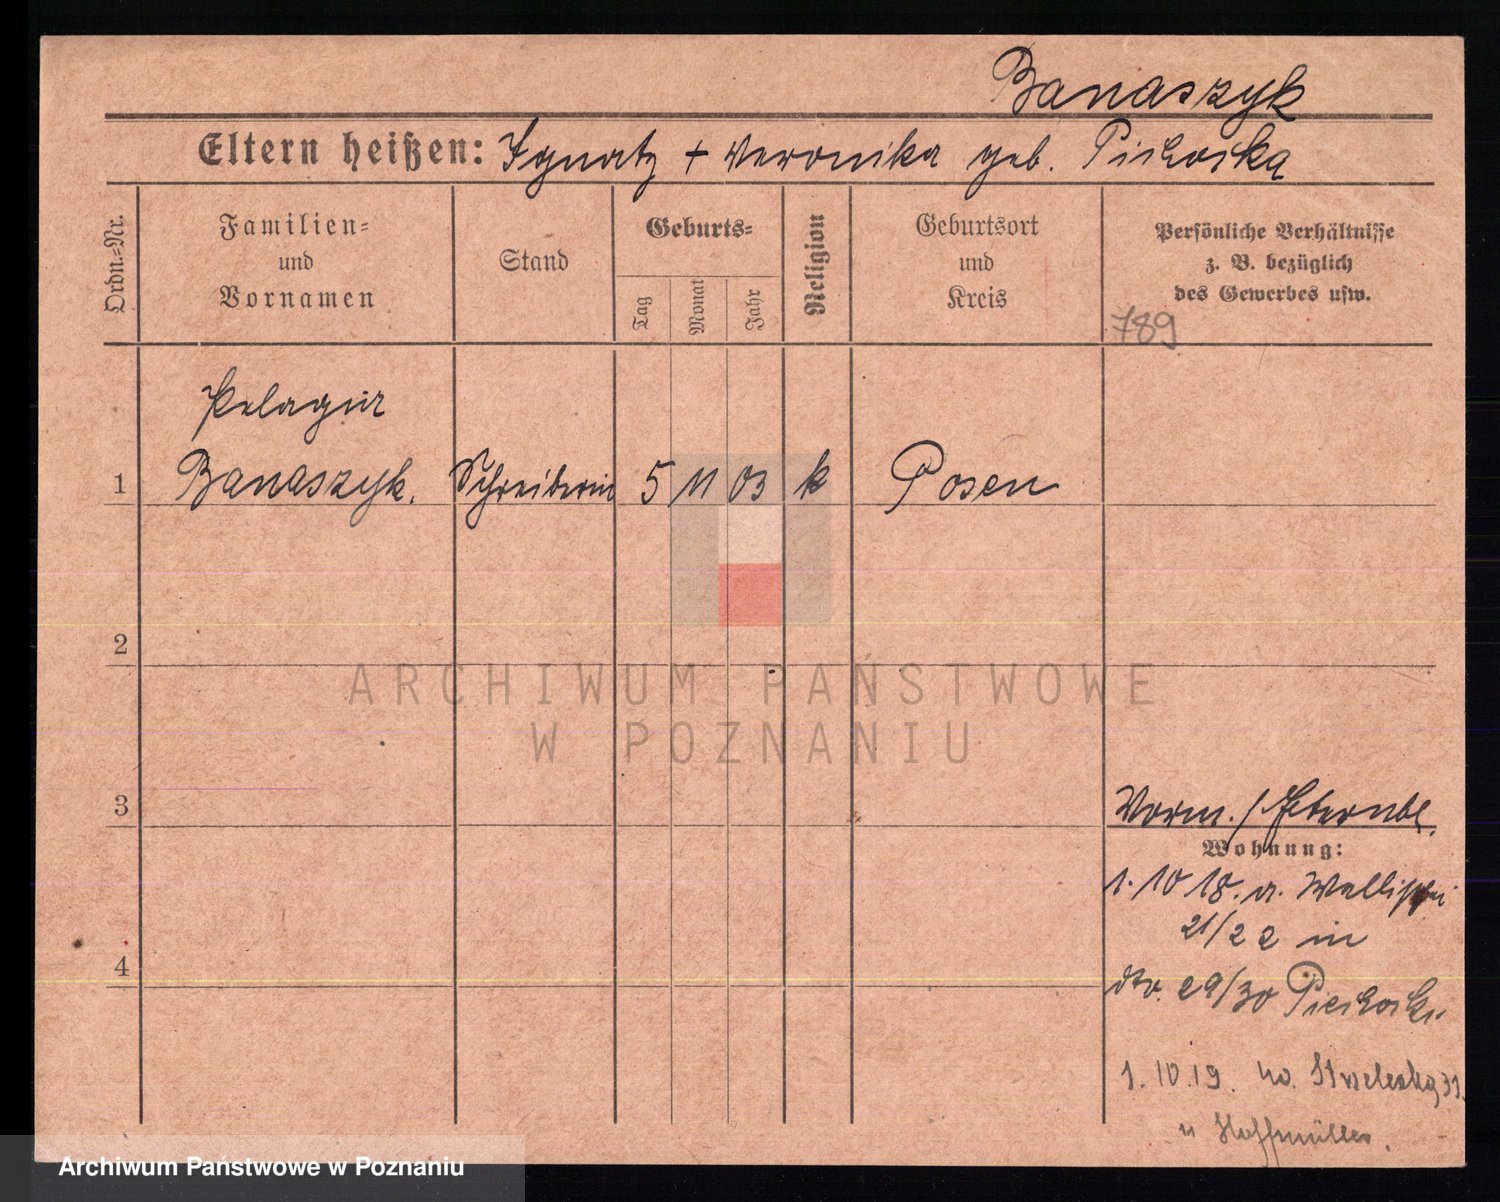 Banaszyk
Eltern heißen: Ignatz + Veronika geb. Piechoska
Ordn.-Nr.
Familien-
und
Vornamen
Stand
Geburts-
Tag
Monat
Jahr
Religion
Geburtsort
und
Kreis
Persönliche Verhältnisse
z. B. bezüglich
des Gewerbes usw.
789
Pelagia
1 Banaszyk. Schreiberin 5 11 03 k Posen
2
ARCHIWUM PAŃSTWOWE
W POZNANIU
3
Vorm. /
Wohnung:
1. 10 18. a. Wallischei
21/22 in
4
dto. 29/30
1. 10 19. no. 31
n Hoffmüller.
Archiwum Państwowe w Poznaniu